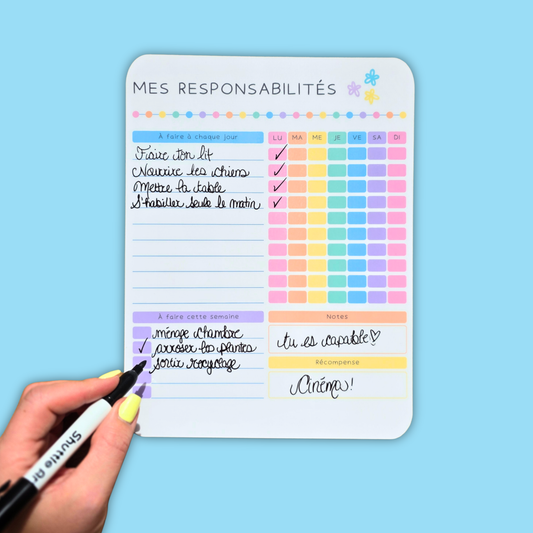 MES RESPONSABILITÉS
À faire à chaque jour
LU MA ME JE VE SA DI
Faire ton lit
Nourrir les chiens
Mettre la table
S'habiller seule le matin
À faire cette semaine
ménage chambre
arroser les plantes
sortir recyclage
Notes
tu es capable
Récompense
Cinéma!
Shuttle Ar